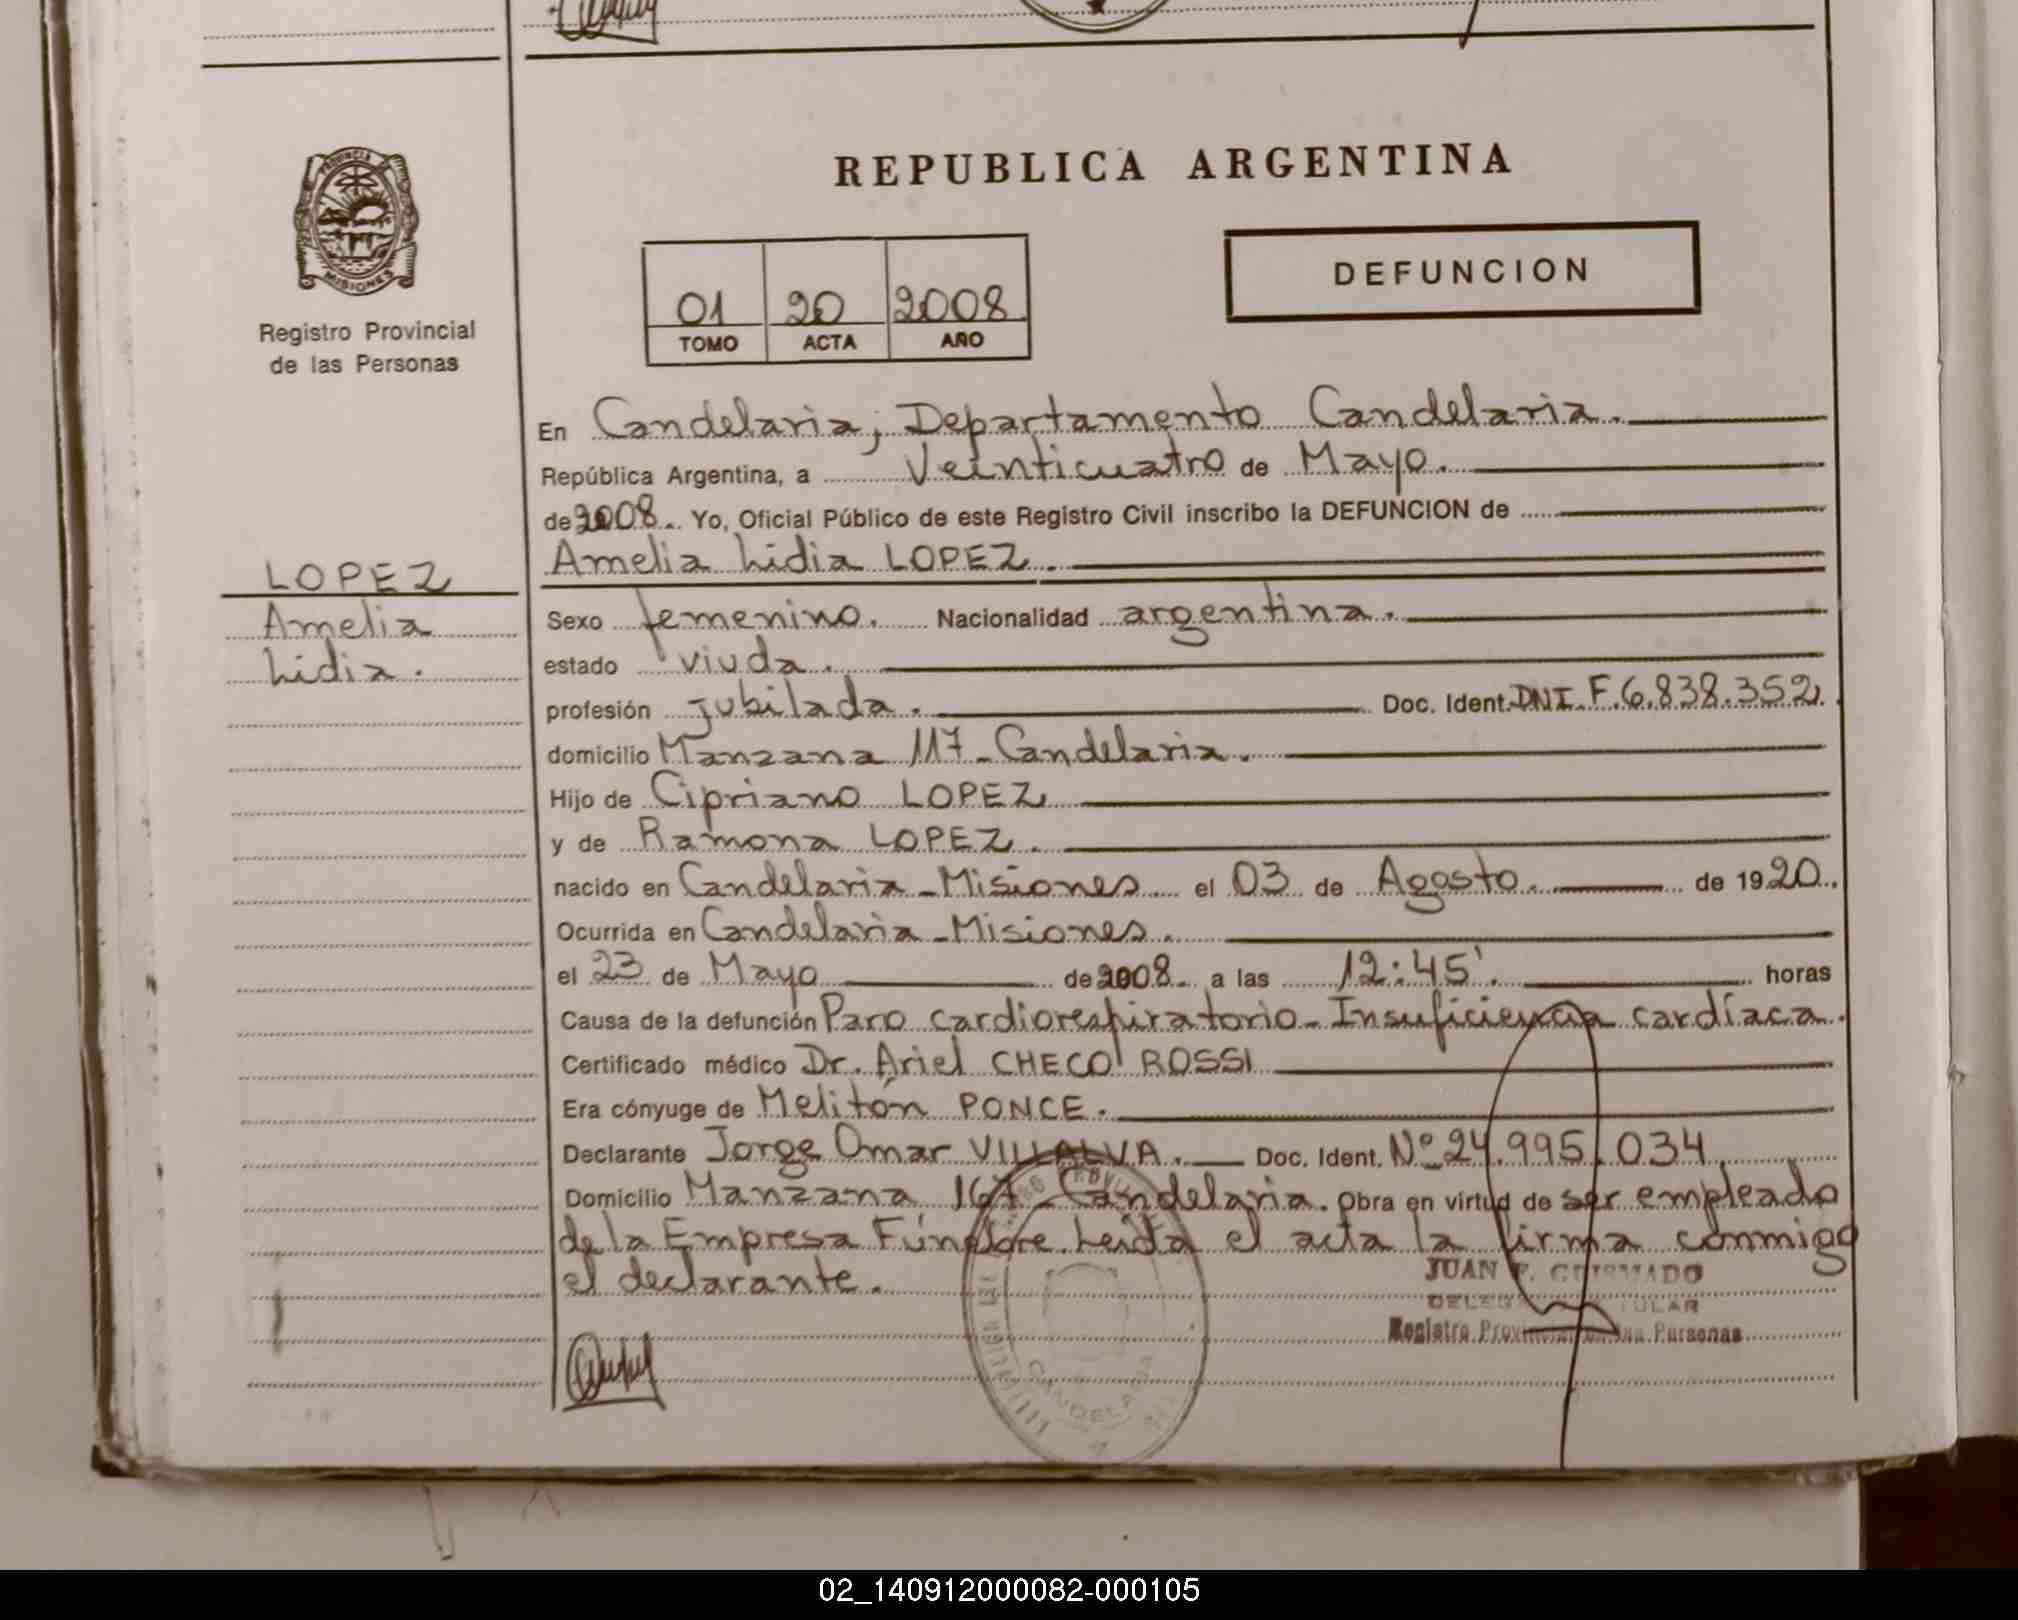 PROVINCIA DE
MISIONES
Registro Provincial
de las Personas
REPUBLICA ARGENTINA
01 20 2008
TOMO ACTA AÑO
DEFUNCION
LOPEZ
Amelia
Lidia.
En Candelaria, Departamento Candelaria.
República Argentina, a Veinticuatro de Mayo.
de 2008. Yo, Oficial Público de este Registro Civil inscribo la DEFUNCION de
Amelia Lidia LOPEZ.
Sexo femenino. Nacionalidad argentina.
estado viuda.
profesión jubilada. Doc. Ident. DNI. F. 6.838.352.
domicilio Manzana 117 - Candelaria.
Hijo de Cipriano LOPEZ
y de Ramona LOPEZ.
nacido en Candelaria - Misiones el 03 de Agosto. de 1920.
Ocurrida en Candelaria - Misiones.
el 23 de Mayo de 2008. a las 12:45'. horas
Causa de la defunción Paro cardiorespiratorio - Insuficiencia cardíaca.
Certificado médico Dr. Ariel CHECO ROSSI
Era cónyuge de Melitón PONCE.
Declarante Jorge Omar VILLALVA. Doc. Ident. Nº 24.995.034
Domicilio Manzana 167 - Candelaria. Obra en virtud de ser empleado
de la Empresa Fúnebre. Leída el acta la firma conmigo
el declarante.
JUAN
Registro Personas
CANDELARIA
02_140912000082-000105